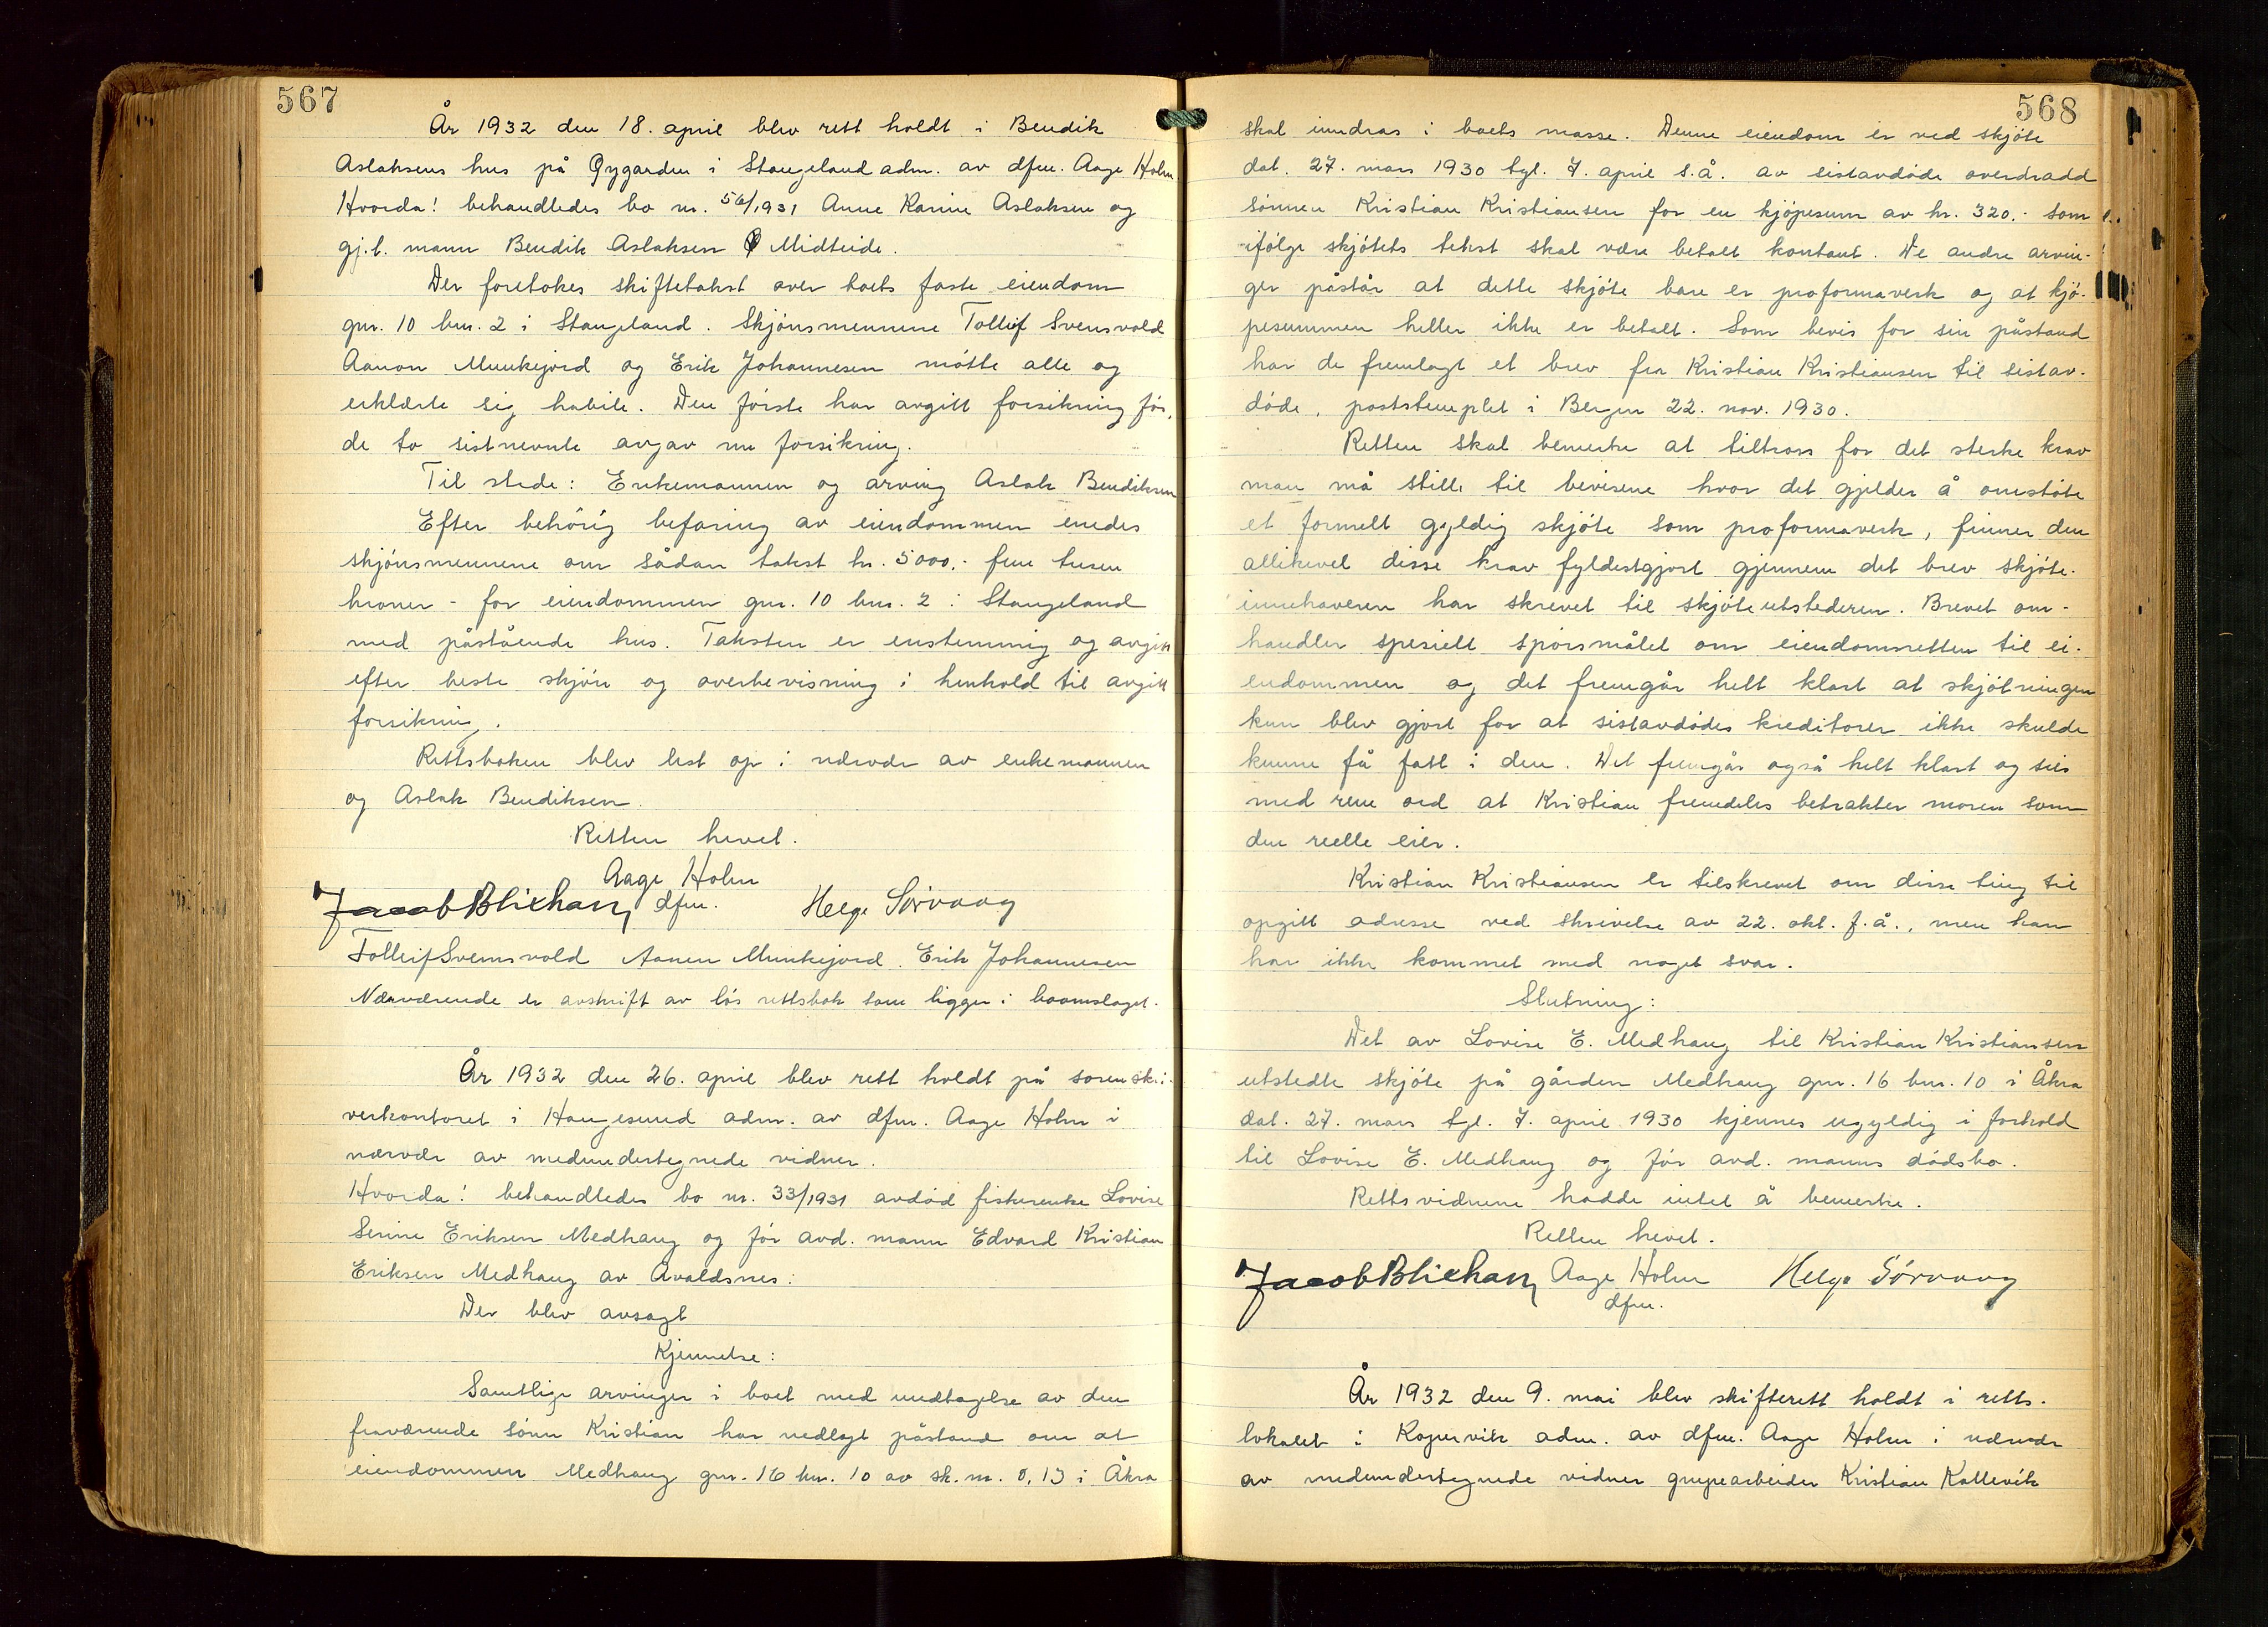 567
År 1932 den 18. april blev rett holdt i Bendik
Aslaksens hus på Øygarden i Stangeland adm. av dfm. Aage Holm.
Hvorda! behandledes bo nr. 56/1931 Anne Karine Aslaksen og
gj.l. mann Bendik Aslaksen Midteide.
Der foretokes skiftetakst over boets faste eiendom
gnr. 10 bnr. 2 i Stangeland. Skjønsmennene Tollef Svensvold
Aanon Munkejord og Erik Johannesen møtte alle og
erklærte sig habile. Den første har avgitt forsikring før,
de to sistnevnte avgav nu forsikring.
Til stede: Enkemannen og arving Aslak Bendiksen
Efter behørig befaring av eiendommen enedes
skjønsmennene om sådan takst kr. 5000,- fem tusen
kroner - for eiendommen gnr. 10 bnr. 2 i Stangeland
med påstående hus. Taksten er enstemmig og avgitt
efter beste skjøn og overbevisning i henhold til avgitt
forsikring.
Rettsboken blev lest op i nærvær av enkemannen
og Aslak Bendiksen.
Retten hevet.
Aage Holm
Jacob Blikhavn dfm. Helge Sørvaag
Tolleif Svensvold Aanen Munkejord. Erik Johannesen
Nærværende er avskrift av løs rettsbok som ligger i boomslaget.
År 1932 den 26. april blev rett holdt på sorenskri-
verkontoret i Haugesund adm. av dfm. Aage Holm i
nærvær av medundertegnede vidner.
Hvorda! behandledes bo nr. 33/1931 avdød fiskerenke Lovise
Serine Eriksen Medhaug og før avd. mann Edvard Kristian
Eriksen Medhaug av Avaldsnes:
Der blev avsagt
Kjennelse:
Samtlige arvinger i boet med undtagelse av den
fraværende sønn Kristian har nedlagt påstand om at
eiendommen Medhaug gnr. 16 bnr. 10 av sk. m. 0,13 i Åkra
568
skal inndras i boets masse. Denne eiendom er ved skjøte
dat. 27. mars 1930 tgl. 7. april s.å. av sistavdøde overdradd
sønnen Kristian Kristiansen for en kjøpesum av kr. 320.- som
ifølge skjøtets tekst skal være betalt kontant. De andre arvin-
ger påstår at dette skjøte bare er proformaverk og at kjø-
pesummen heller ikke er betalt. Som bevis for sin påstand
har de fremlagt et brev fra Kristian Kristiansen til sistav-
døde, poststemplet i Bergen 22. nov. 1930.
Retten skal bemerke at tiltross for det sterke krav
man må stille til bevisene hvor det gjelder å omstøte
et formelt gyldig skjøte som proformaverk, finner den
allikevel disse krav fyldestgjort gjennem det brev skjøte-
innehaveren har skrevet til skjøteutstederen. Brevet om-
handler spesielt spørsmålet om eiendomsretten til ei-
endommen og det fremgår helt klart at skjøtningen
kun blev gjort for at sistavdødes kreditorer ikke skulde
kunne få fatt i den. Det fremgår også helt klart og sies
med rene ord at Kristian fremdeles betrakter moren som
den reelle eier.
Kristian Kristiansen er tilskrevet om disse ting til
opgitt adresse ved skrivelse av 22. okt. f.å., men han
har ikke kommet med noget svar.
Slutning:
Det av Lovise E. Medhaug til Kristian Kristiansen
utstedte skjøte på gården Medhaug gnr. 16 bnr. 10 i Åkra
dat. 27. mars tgl. 7. april 1930 kjennes ugyldig i forhold
til Lovise E. Medhaug og før avd. manns dødsbo.
Rettsvidnene hadde intet å bemerke.
Retten hevet.
Jacob Blikhavn Aage Holm Helge Sørvaag
dfm.
År 1932 den 9. mai blev skifterett holdt i retts-
lokalet i Kopervik adm. av dfm. Aage Holm i nærvær
av medundertegnede vidner grupearbeider Kristian Kallevik